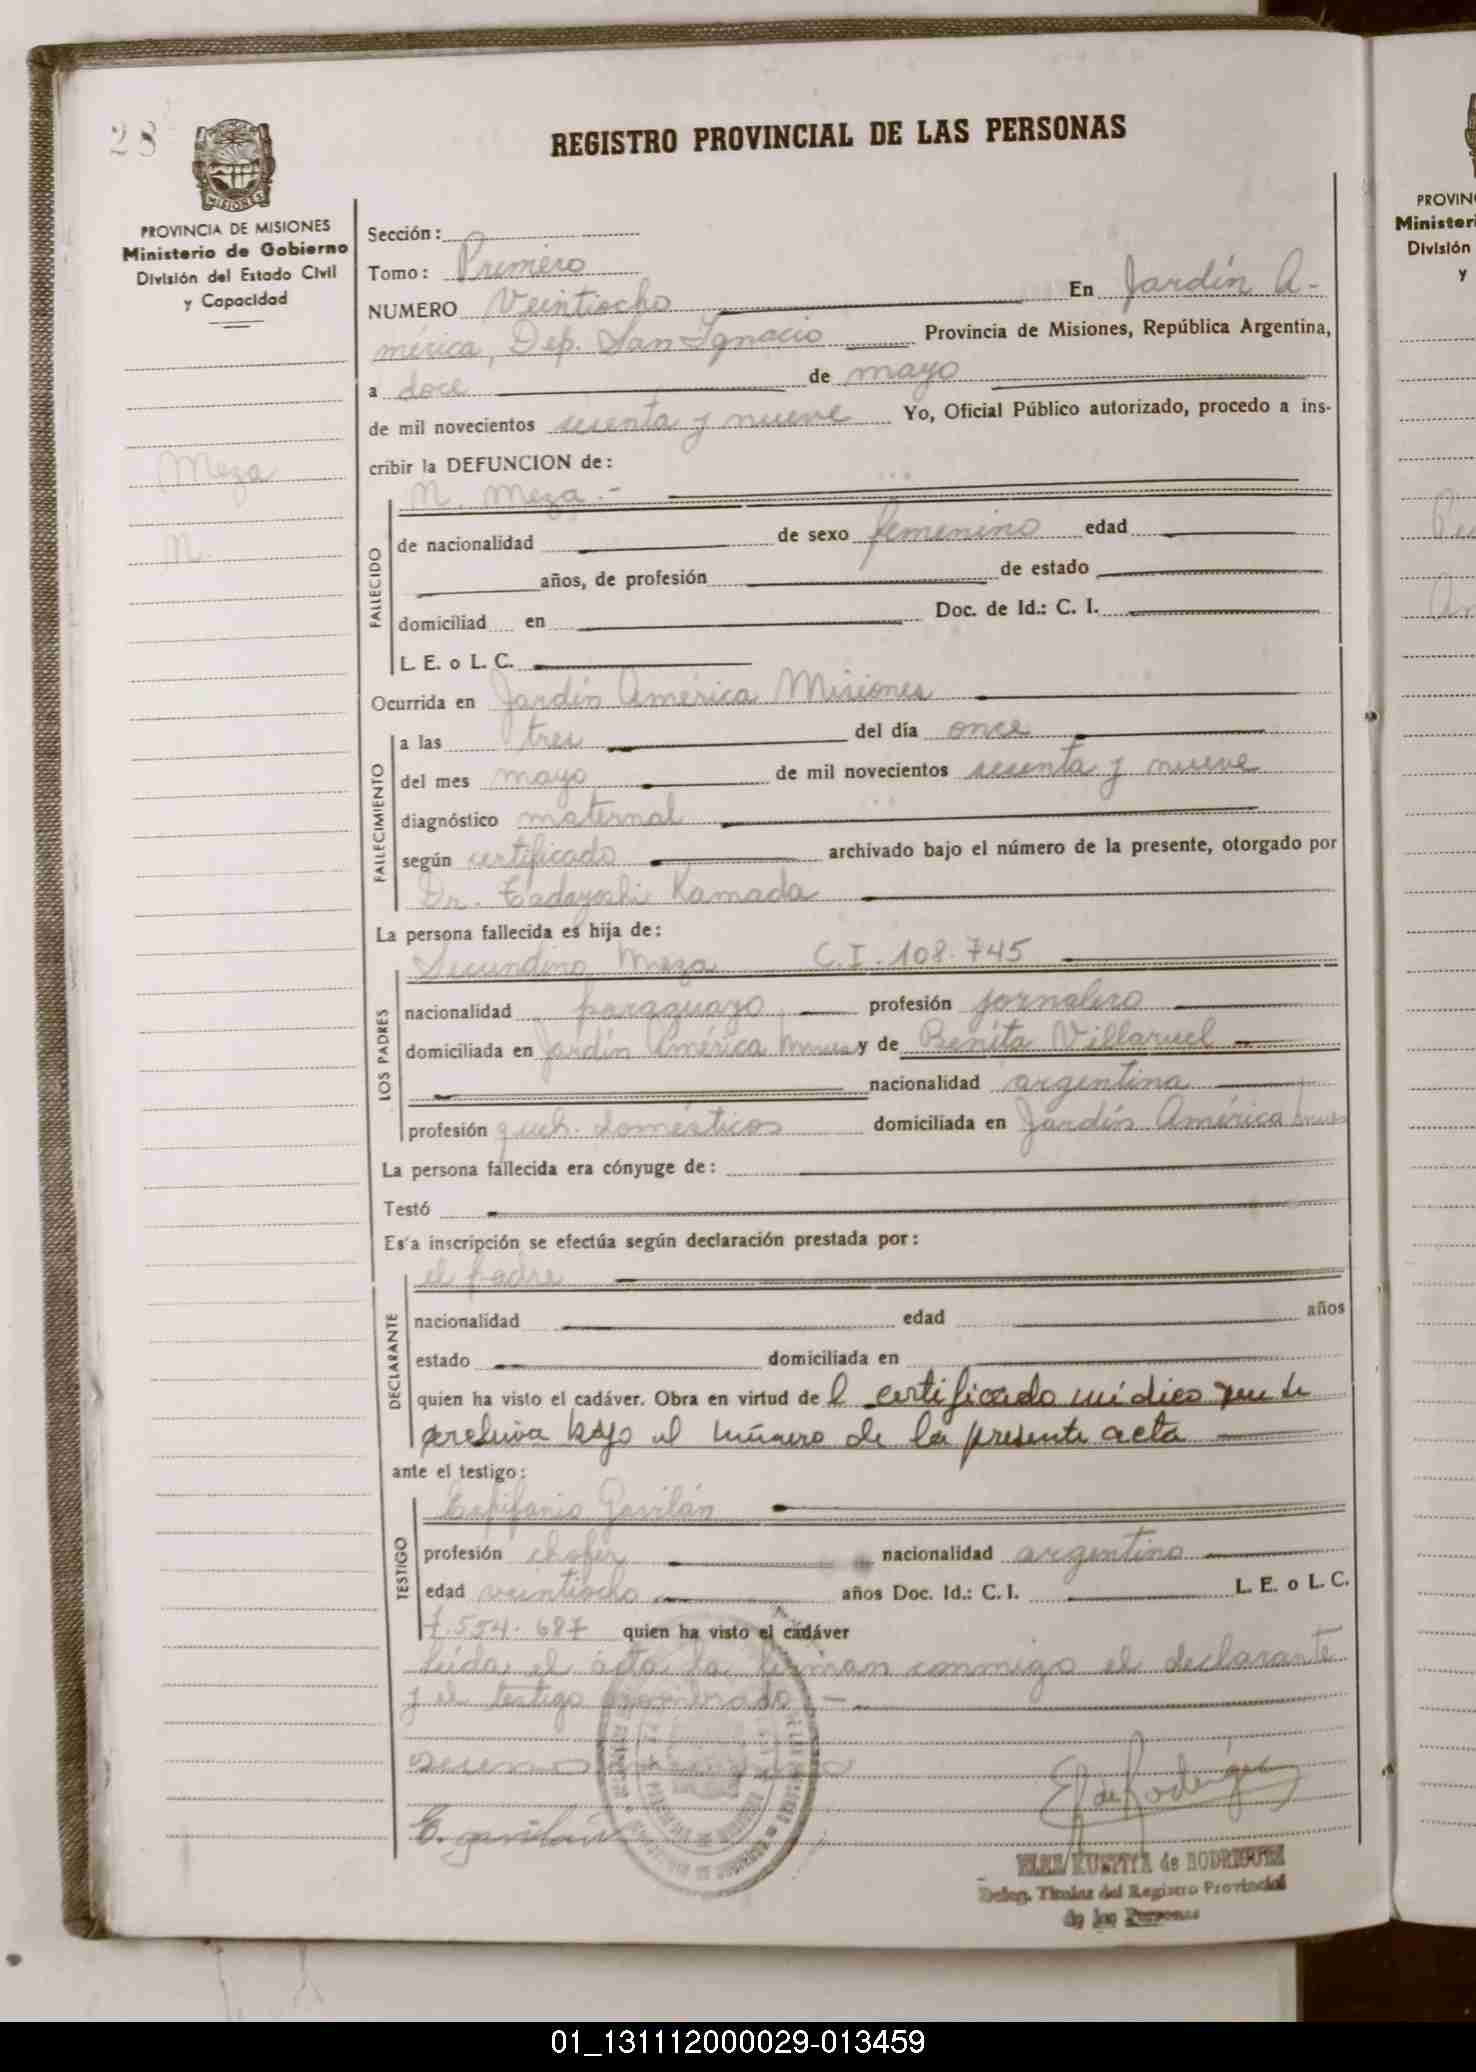 28
REGISTRO PROVINCIAL DE LAS PERSONAS
MISIONES
PROVINCIA DE MISIONES
Ministerio de Gobierno
División del Estado Civil
y Capacidad
Meza
N.
Sección:
Tomo: Primero
NUMERO Veintiocho En Jardín A-
mérica, Dep. San Ignacio Provincia de Misiones, República Argentina,
a doce de mayo
de mil novecientos sesenta y nueve Yo, Oficial Público autorizado, procedo a ins-
cribir la DEFUNCION de:
N. Meza.-
FALLECIDO
de nacionalidad de sexo femenino edad
años, de profesión de estado
domiciliad en Doc. de Id.: C. I.
L. E. o L. C.
Ocurrida en Jardín América Misiones
FALLECIMIENTO
a las tres del día once
del mes mayo de mil novecientos sesenta y nueve
diagnóstico maternal
según certificado archivado bajo el número de la presente, otorgado por
Dr. Tadayoshi Kamada
La persona fallecida es hija de:
LOS PADRES
Secundino Meza C.I. 108.745
nacionalidad paraguayo profesión jornalero
domiciliada en Jardín América y de Benita Villaruel
nacionalidad argentina
profesión queh. domésticos domiciliada en Jardín América
La persona fallecida era cónyuge de:
Testó
Es'a inscripción se efectúa según declaración prestada por:
DECLARANTE
el padre
nacionalidad edad años
estado domiciliada en
quien ha visto el cadáver. Obra en virtud de l certificado médico que se
archiva bajo el número de la presente acta
ante el testigo:
TESTIGO
Epifanio Gavilán
profesión chofer nacionalidad argentino
edad veintiocho años Doc. Id.: C. I. L. E. o L. C.
7.554.687 quien ha visto el cadáver
Leída el acta la firman conmigo el declarante
y el testigo nombrado.-
E. gavilán
E K de Rodríguez
de RODRIGUEZ
Deleg. Titular del Registro Provincial
de las Personas
PROVIN
Minister
División
y
01_131112000029-013459